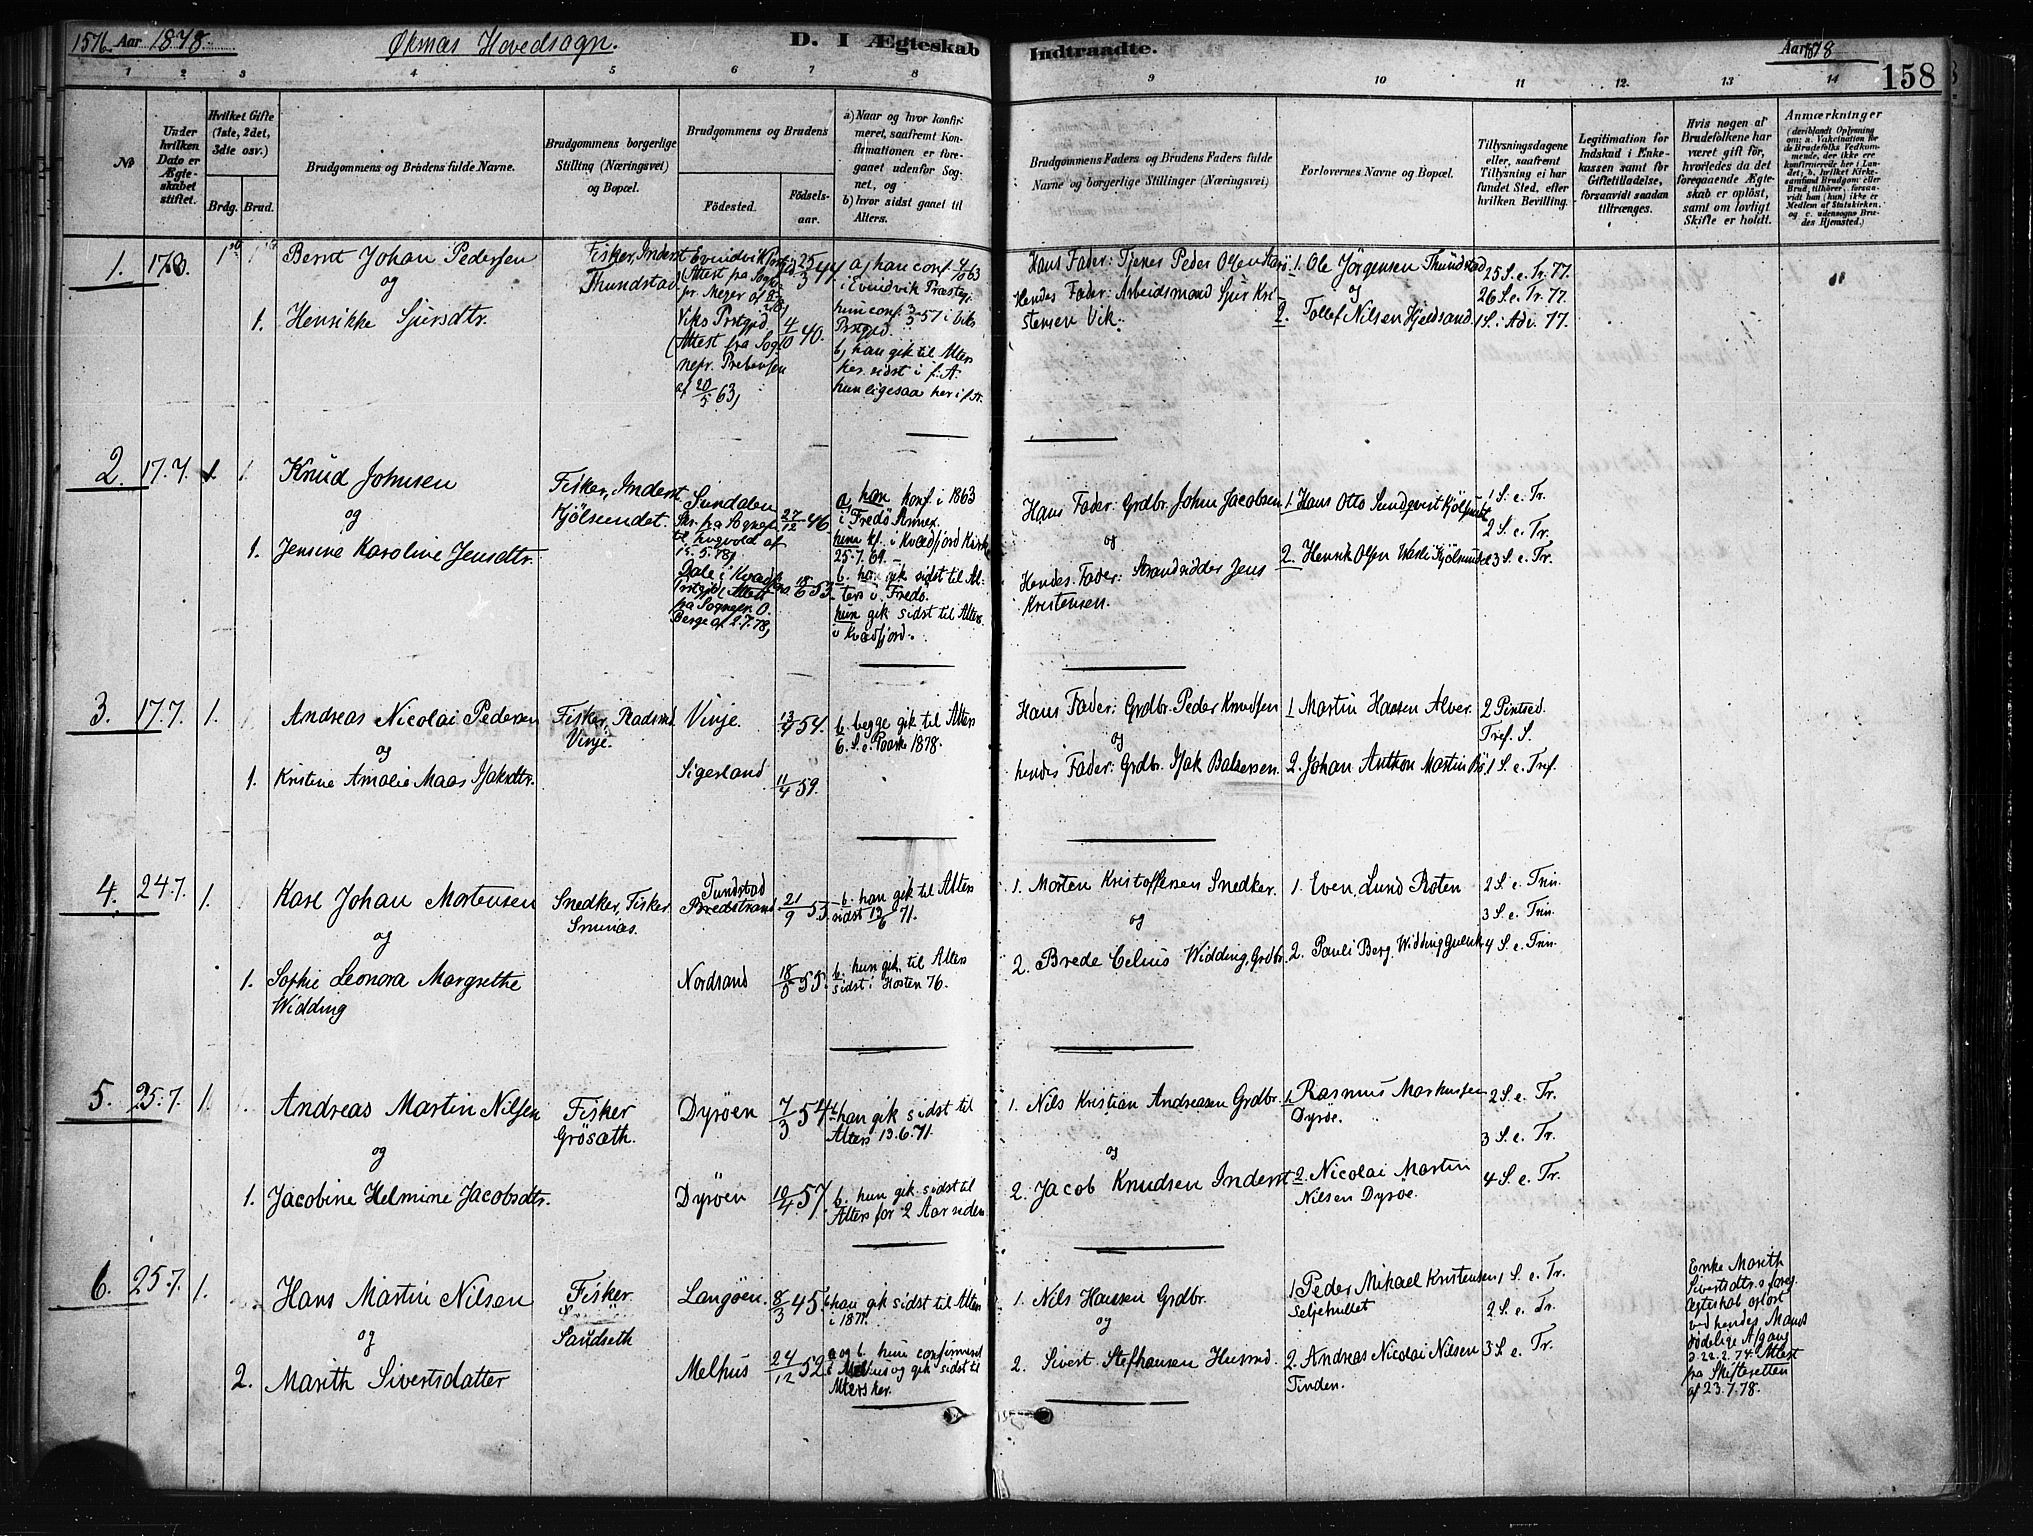 157b. Aar 1878. Øksnæs Hovedsogn. D. I Ægteskab
Indtraadte. Aar 1878
158
1 2 3 4 5 6 7 8
9 10 11 12. 13 14
No
Under hvilken Dato er Ægteskabet stiftet.
Hvilket Gifte (1ste, 2det, 3die osv.)
Brdg. Brud.
Brudgommens og Brudens fulde Navne.
Brudgommens borgerlige Stilling (Næringsvei) og Bopæl.
Brudgommens og Brudens
Födested. Födsels-aar.
a) Naar og hvor konfirmeret, saafremt Konfirmationen er foregaaet udenfor Sognet, og
b) hvor sidst gaaet til Alters.
Brudgommens Faders og Brudens Faders fulde Navne og borgerlige Stillinger (Næringsvei)
Forlovernes Navne og Bopæl.
Tillysningsdagene eller, saafremt Tillysning ei har fundet Sted, efter hvilken Bevilling.
Legitimation for Indskud i Enkekassen samt for Giftetilladelse, forsaavidt saadan tiltrænges.
Hvis nogen af Brudefolkene har været gift för, hvorledes da det foregaaende Ægteskab er oplöst, samt om lovligt Skifte er holdt.
Anmærkninger
(deriblandt Oplysning om: a. Vakcination for de Brudefolks Vedkommende, der ikke ere konfirmerede her i Landet; b. hvilket Kirkesamfund Brudgom eller Brud tilhörer, forsaavidt han (hun) ikke er Medlem af Statskirken, og c. udensogns Brudes Hjemsted.)
1. 17. 1ste Bernt Johan Pedersen
og
1. Henrikke Sjursdtr.
Fisker, Inderst
Thunstad
Evindvik
(Attest fra Sogne
pr. Meyer af
Viks Prstgjd.
(Attest fra Sog
nepr. Prebensen
af 20/5 63)
25/3 44
4/10 40.
a, han conf. 4/10 63
i Evindvik Præstegj.
hun conf. 57 i Viks
Prstgjd.
b, han gik til Alters
her sidst i f. A.
hun ligesaa her i f. A.
Hans Fader: Tjener Peder Olsen
Hendes Fader: Arbeidsmand Sjur Kri
stensen Vik.
1. Ole Jörgensen Thunstad
og
2. Tollef Nilsen Hjeldsand.
25 S. e. Tr. 77.
26 S. e. Tr. 77.
1 S. i Adv. 77.
2. 17.7 1. Knud Johnsen
og
1. Jensine Karoline Jensdtr.
Fisker, Inderst
Kjölsundet.
Sundalen
27/12 46
Gale i Kvædfjord
Prstgjd (Attest
fra Sognepr. O.
Berge af 2.7.78)
18/6 53.
a, han konf. i 1863
i Fredö Annex.
hun kf. i Kvædfjord Kirke
25.7.69.
b. han gik sidst til Al-
ters i Fredö.
hun gik sidst til Alters
i Kvædfjord.
Hans Fader: Grdbr. John Jacobsen
og
Hendes Fader: Strandsidder Jens
Kristensen.
1 Hans Otto Sundqvist Kjölsundet
2. Henrik Olsen Kjölsundet
1 S. e. Tr.
2 S. e. Tr.
3 S. e. Tr.
3. 17.7. 1. Andreas Nicolai Pedersen
og
1. Kristine Amalie Maas Isaksdtr.
Fisker, Pladsmd
Vinje.
Vinje. 13/9 54.
Sigerland 11/4 59.
b. begge gik til Alters
6. S. e. Paaske 1878.
Hans Fader: Grdbr. Peder Knudsen
og
hendes Fader: Grdbr. Isak Baltsersen.
1 Martin Hansen Alver.
2. Johan Anthon Martin
2 Pintsed.
Tref. S.
1 S. e. Tref.
4. 24.7. 1. Karl Johan Mortensen
og
1. Sophie Leonora Margrethe
Widding
Snedker, Fisker
Smines.
Tundstad
Bredstrand 21/9 53.
Nordsand 18/5 55.
b. han gik til Alters
sidst 13/6 71.
b. hun gik til Alters
sidst i Hosten 76.
1. Morten Kristoffersen Snedker.
og
2. Brede Celius Widding, Grdbr.
1. Even Lund Roten
2. Pauli Berg Widding
2 S. e. Trin.
3 S. e. Trin.
4 S. e. Trin.
5. 25.7. 1. Andreas Martin Nilsen
og
1. Jacobine Helmine Jacobsdtr.
Fisker
Grösæth.
Dyröen 7/3 54
Dyröen 10/4 57
b. han gik sidst til
Alters 13.6.71.
b. hun gik sidst til
Alters for 2 Aar siden
1. Nils Kristian Andreasen Grdbr.
og
2. Jacob Knudsen Inderst
1 Rasmus Markussen
Dyröe.
2. Nicolai Martin
Nilsen Dyröe.
2 S. e. Tr.
3 S. e. Tr.
4 S. e. Tr.
6. 25.7. 1. Hans Martin Nilsen
og
2. Marith Sivertsdatter
Fisker
Sandseth
Langöen. 8/3 45
Melhus 24/12 52
b. han gik sidst til Alters
i 187.
a og b. hun confirmeret
i Melhus og gik sidst til
Alters her.
1. Nils Hansen Grdbr.
og
2. Sivert Steffansen Husmd.
1 Peder Mikael Kristensen
Seljehullet
2. Andreas Nicolai Nilsen
Tinden.
1 S. e. Tr.
2 S. e. Tr.
3 S. e. Tr.
Enke Marith
Sivertsdtrs foreg.
Ægteskab oplöst
ved hendes Mands
dödelige Afgang
d. 22.2.74. Attest
fra Skifteretten
af 23.7.78.